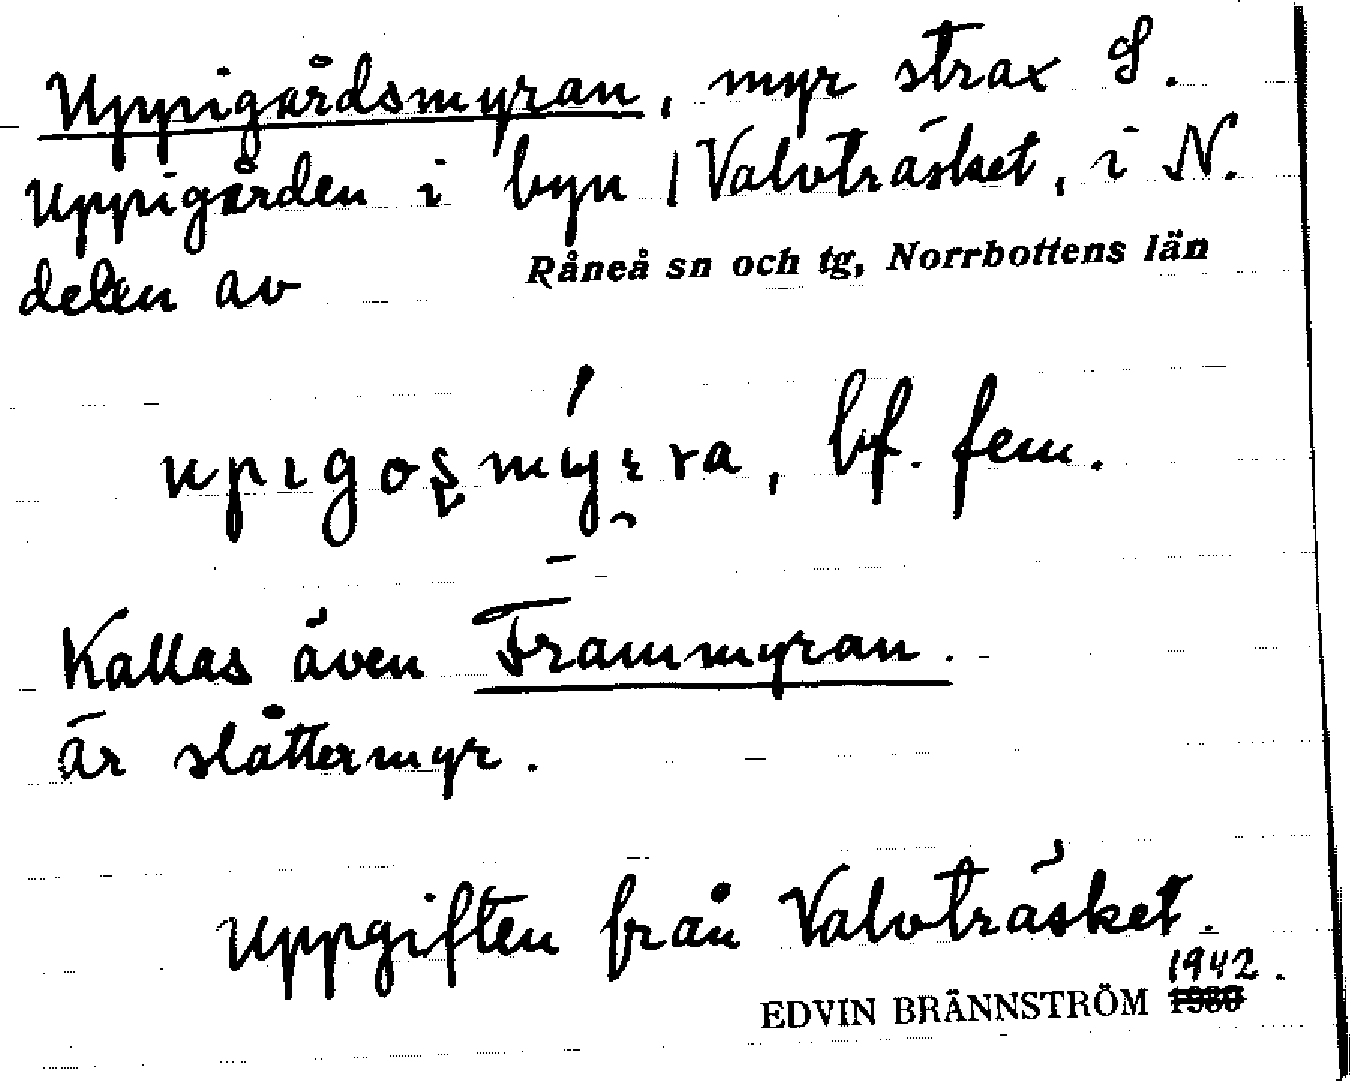 Uppigårdsmyran, myr strax S.
Uppigården i byn / Valvträsket, i N.
delen av Råneå sn och tg, Norrbottens län
bf. fem.
Kallas även Frammyran.
är slåttermyr.
Uppgiften från Valvträsket.
1942.
EDVIN BRÄNNSTRÖM 1930